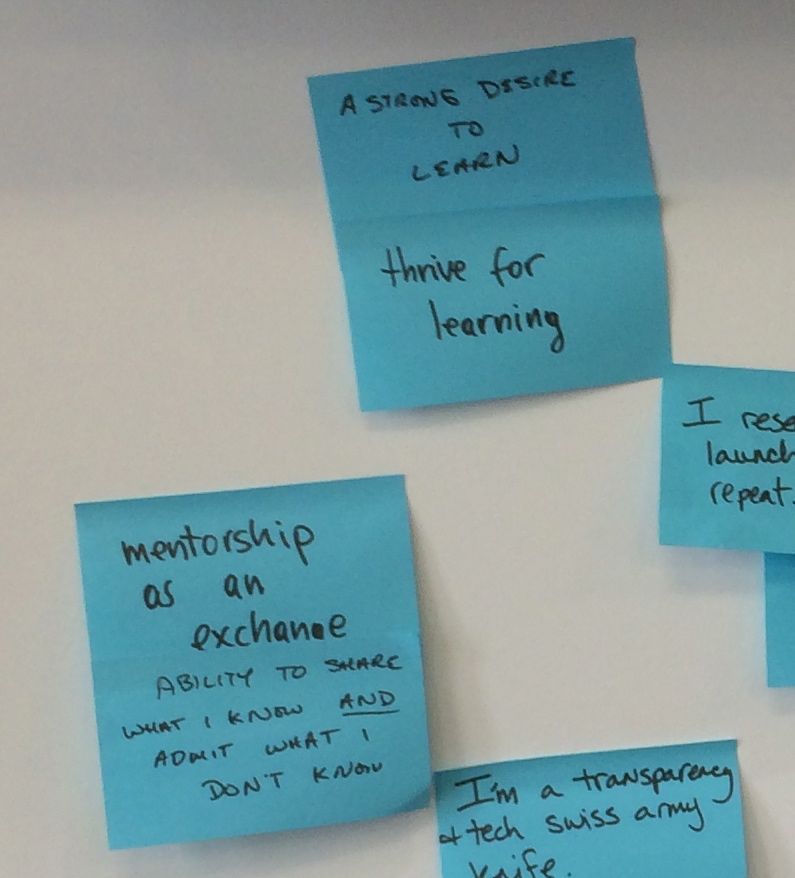 A STRONG DESIRE
TO
LEARN
thrive for
learning
I rese
launch
repeat.
mentorship
as an
exchange
ABILITY TO SHARE
WHAT I KNOW AND
ADMIT WHAT I
DON'T KNOW
I'm a transparency
& tech swiss army
knife.